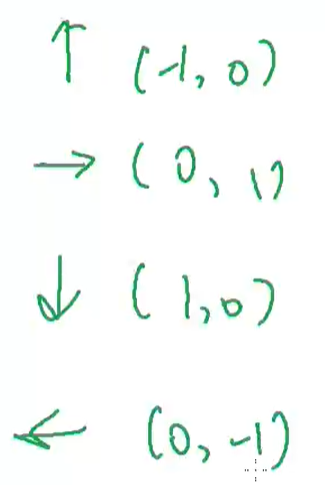 ↑ (-1, 0)
→ (0, 1)
↓ (1, 0)
← (0, -1)